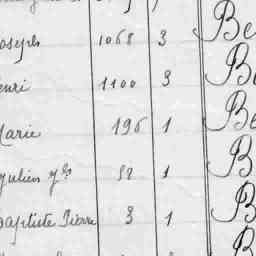 Joseph 1068 3 Be
Henri 1100 3 Be
Marie 196 1 Be
Julien 58 1 B
Baptiste Pierre 3 1 B
B